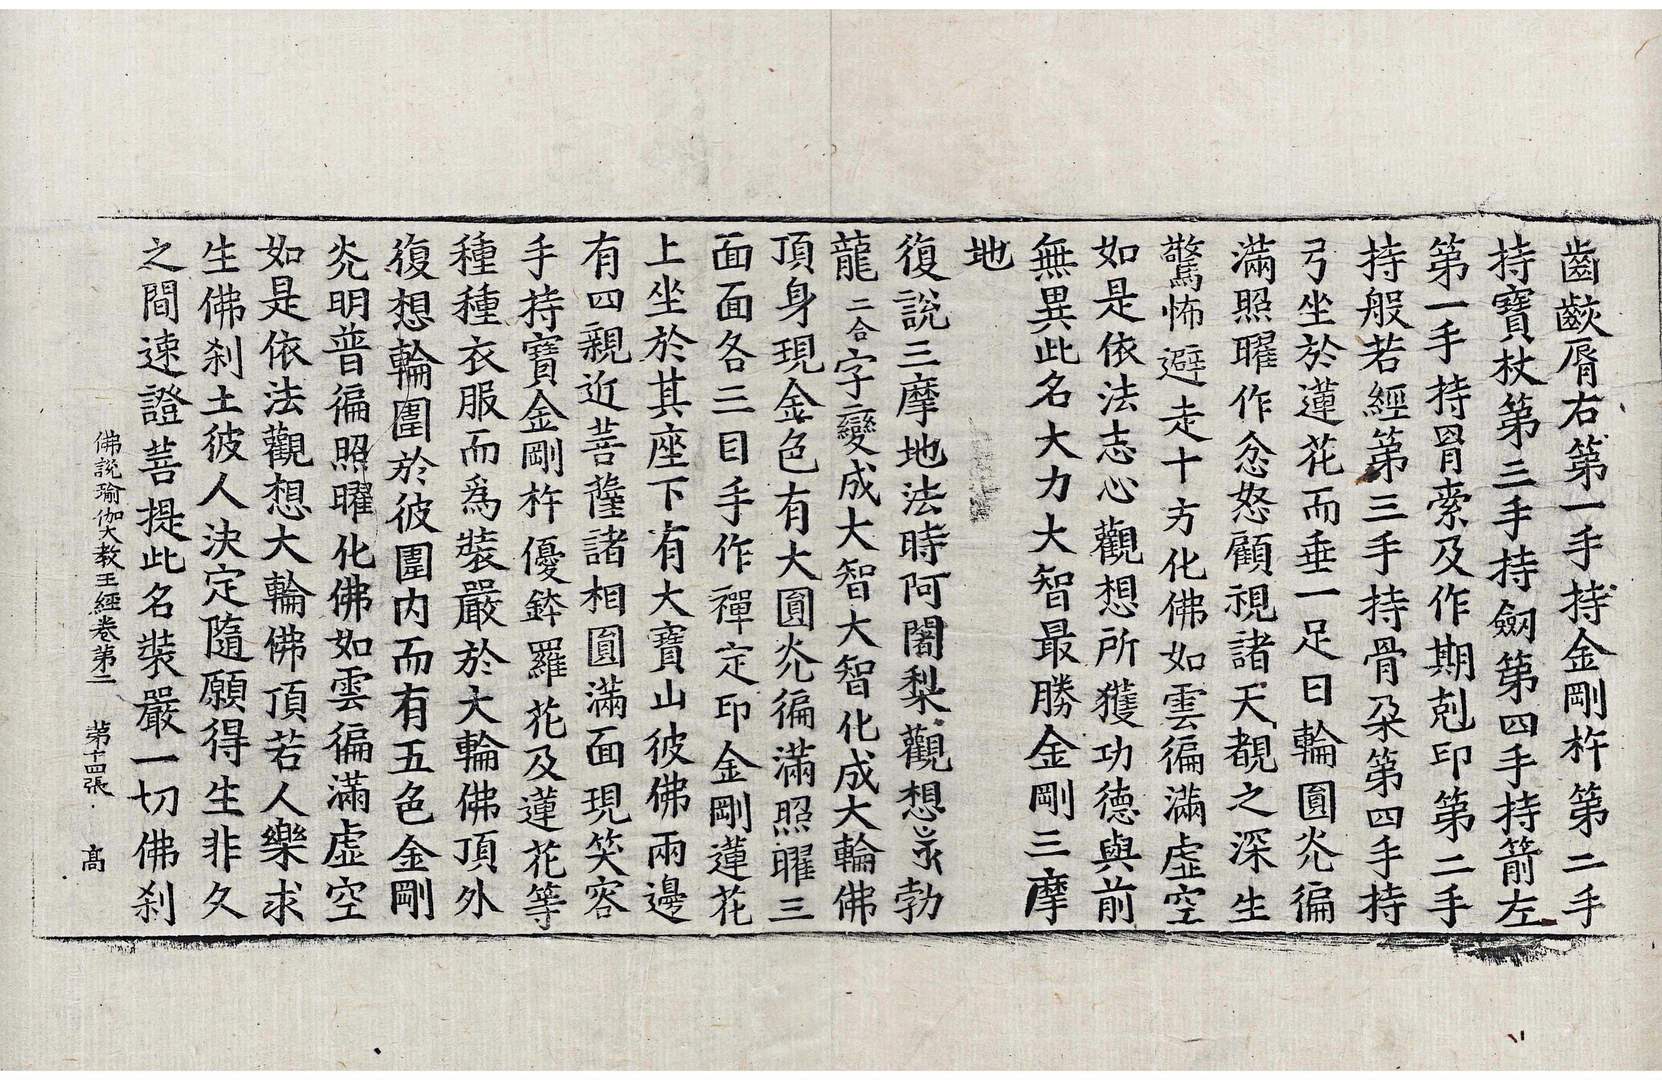 齒齩脣右第一手持金剛杵第二手
持寶杖第三手持劒第四手持箭左
第一手持羂索及作期剋印第二手
持般若經第三手持骨朵第四手持
弓坐於蓮花而垂一足日輪圓光徧
滿照曜作忿怒顧視諸天覩之深生
驚怖避走十方化佛如雲徧滿虛空
如是依法志心觀想所獲功德與前
無異此名大力大智最勝金剛三摩
地
復說三摩地法時阿闍梨觀想勃
龍二合字變成大智大智化成大輪佛
頂身現金色有大圓光徧滿照曜三
面面各三目手作禪定印金剛蓮花
上坐於其座下有大寶山彼佛兩邊
有四親近菩薩諸相圓滿面現笑容
手持寶金剛杵優鉢羅花及蓮花等
種種衣服而爲裝嚴於大輪佛頂外
復想輪圍於彼圍内而有五色金剛
光明普徧照曜化佛如雲徧滿虛空
如是依法觀想大輪佛頂若人樂求
生佛刹土彼人決定隨願得生非久
之間速證菩提此名裝嚴一切佛刹
佛說瑜伽大教王經卷第二 第十四張 髙